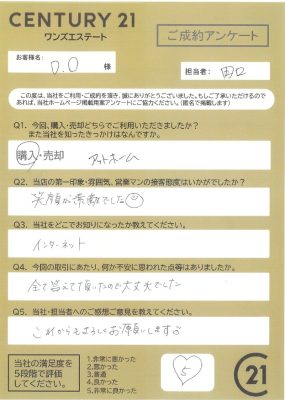 CENTURY 21
ワンズエステート
ご成約アンケート
お客様名:
O.O 様
担当者: 田口
この度は、当社をご利用・ご成約を頂き、誠にありがとうございました。もしご了承いただけるので
あれば、当社ホームページ掲載用案アンケートにご協力ください。(匿名で掲載します)
Q1. 今回、購入・売却どちらでご利用いただきましたか?
また当社を知ったきっかけはなんですか。
購入・売却 アットホーム
Q2. 当店の第一印象・雰囲気、営業マンの接客態度はいかがでしたか?
笑顔が素敵でした
Q3. 当社をどこでお知りになったか教えてください。
インターネット
Q4. 今回の取引にあたり、何か不安に思われた点等はありましたか。
全て答えて頂いたので大丈夫でした
Q5. 当社・担当者へのご感想ご意見を教えてください。
これからもよろしくお願いします
当社の満足度を
5段階で評価
してください。
1.非常に悪かった
2.悪かった
3.普通
4.良かった
5.非常に良かった
5
C21